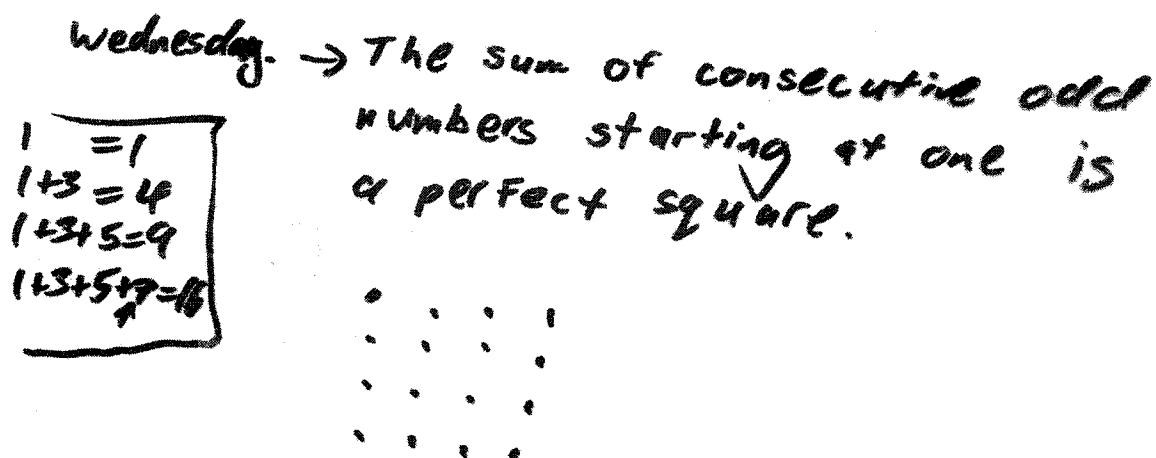 Wednesday. → The sum of consecutive odd
numbers starting at one is
a perfect square.
1 = 1
1+3 = 4
1+3+5=9
1+3+5+7=16